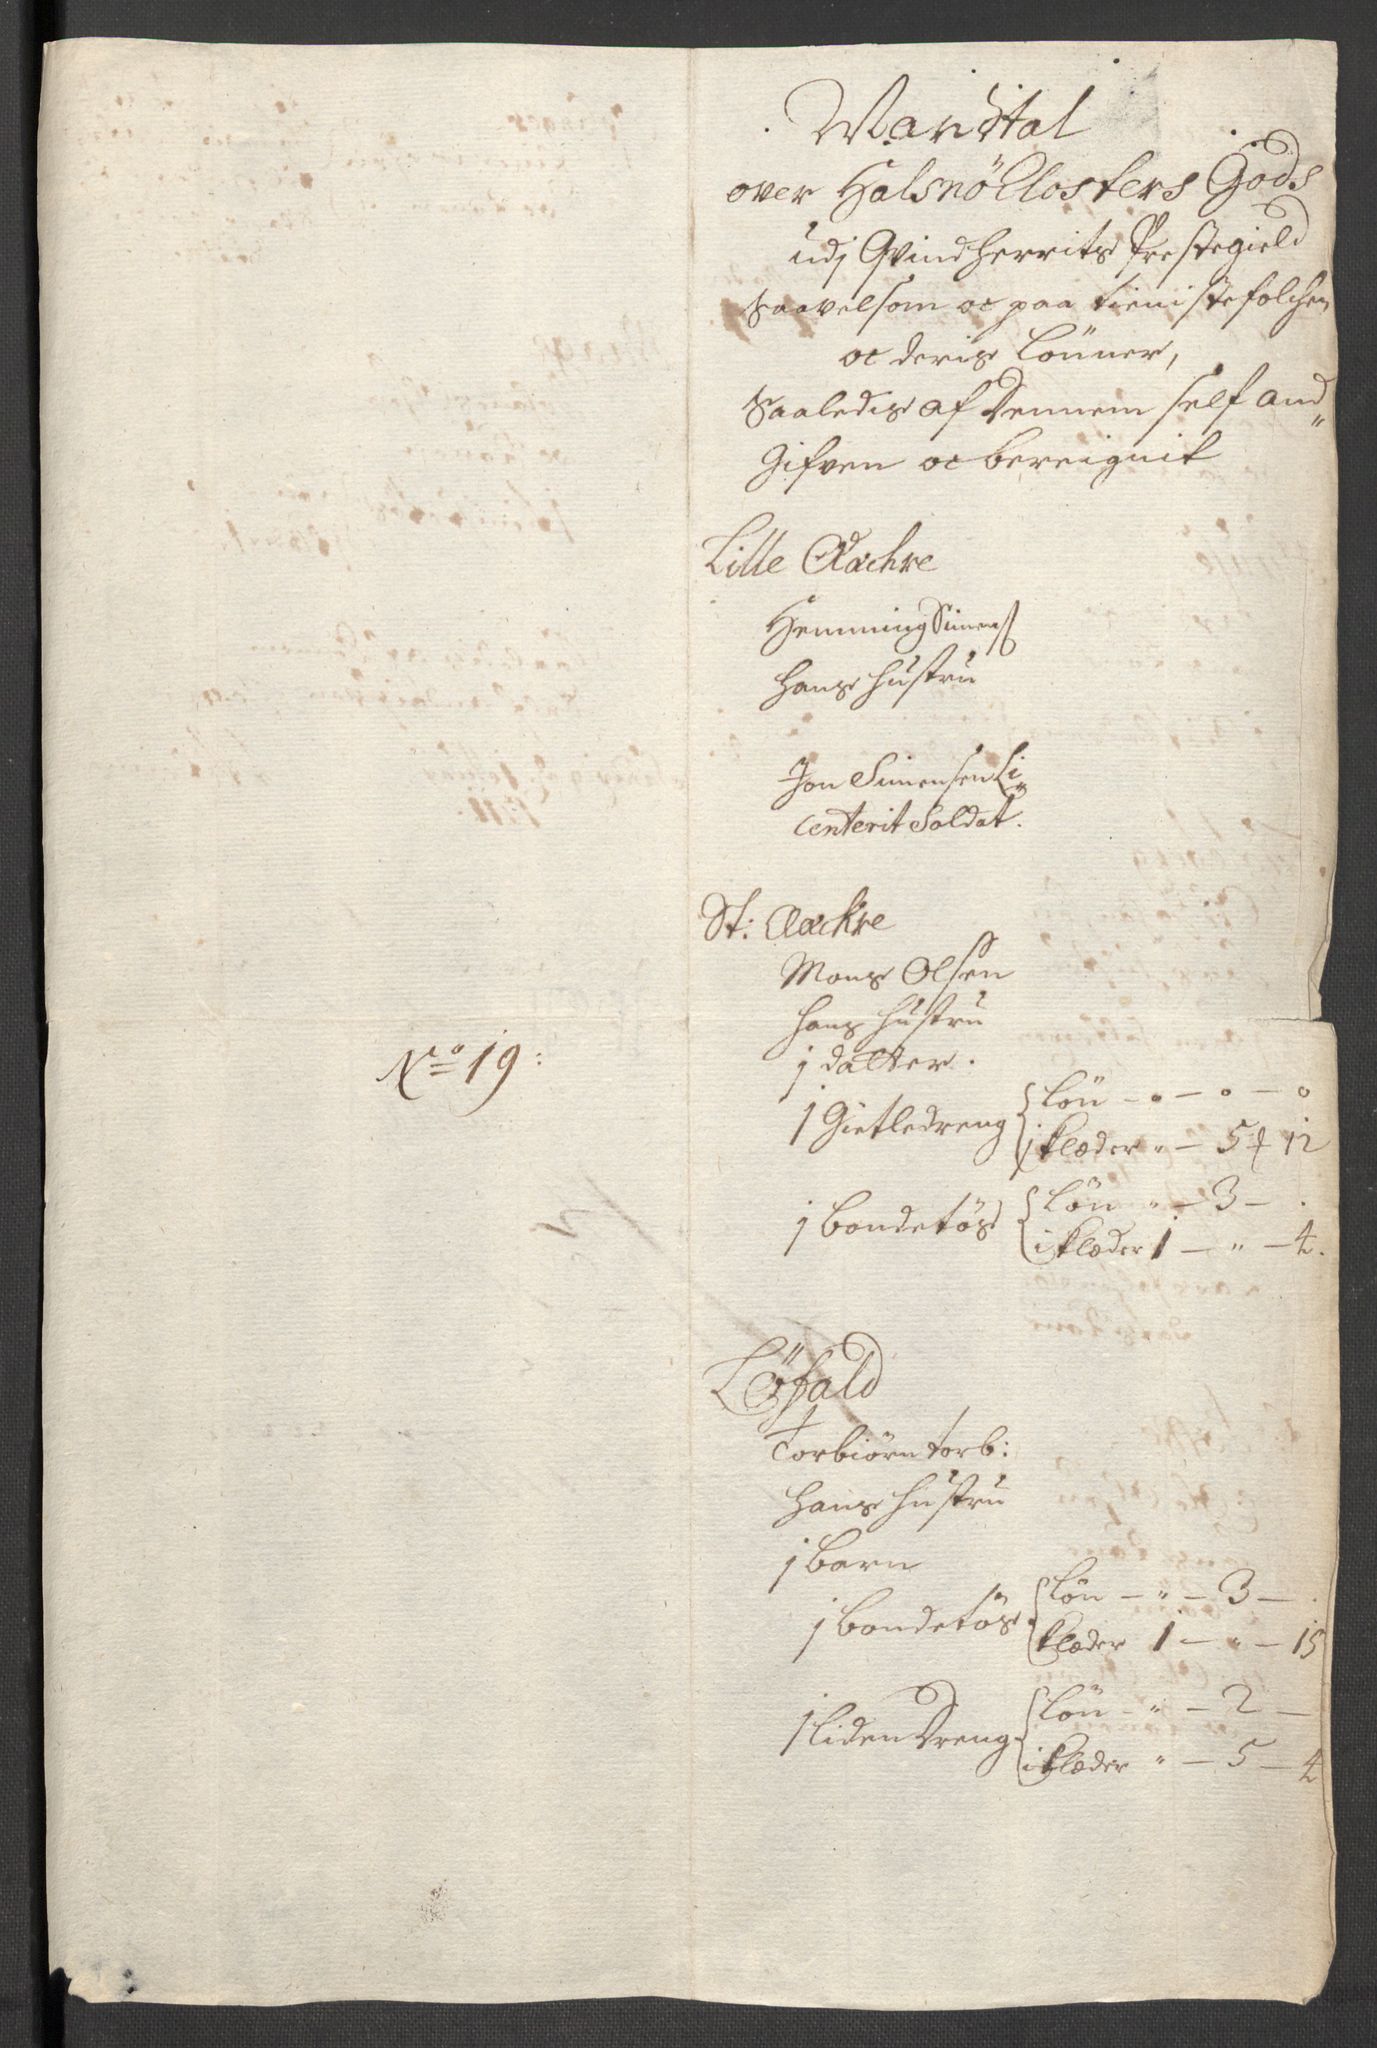 Mandtal
over Halsnö Closters Gods
udj Qvindherrits Prestegield
saavelsom oc paa tienistefolchen
oc deris Lönner,
saaledis af dennem self and„
Gifven oc bereignit
Lille Aachre
Hemming Simens
hans hustru
Jon Simensen Li„
centerit Soldat.
St: Aackre
Mons Olsen
hans hustru
j datter.
No 19:
j Gietledreng
Løn — „ — o — o
i klæder „ — 5 ₰ 12
j bondetøs
Løn „ — 3 — .
i klæder 1 — „ — 4.
Löfald
Torbiörn torb:
hans hustru
j barn
j bondetös
Løn — „ — 3 — .
klæder 1 — „ — 15
j liden Dreng
Løn — „ — 2 —
i klæder „ — 5 — 4